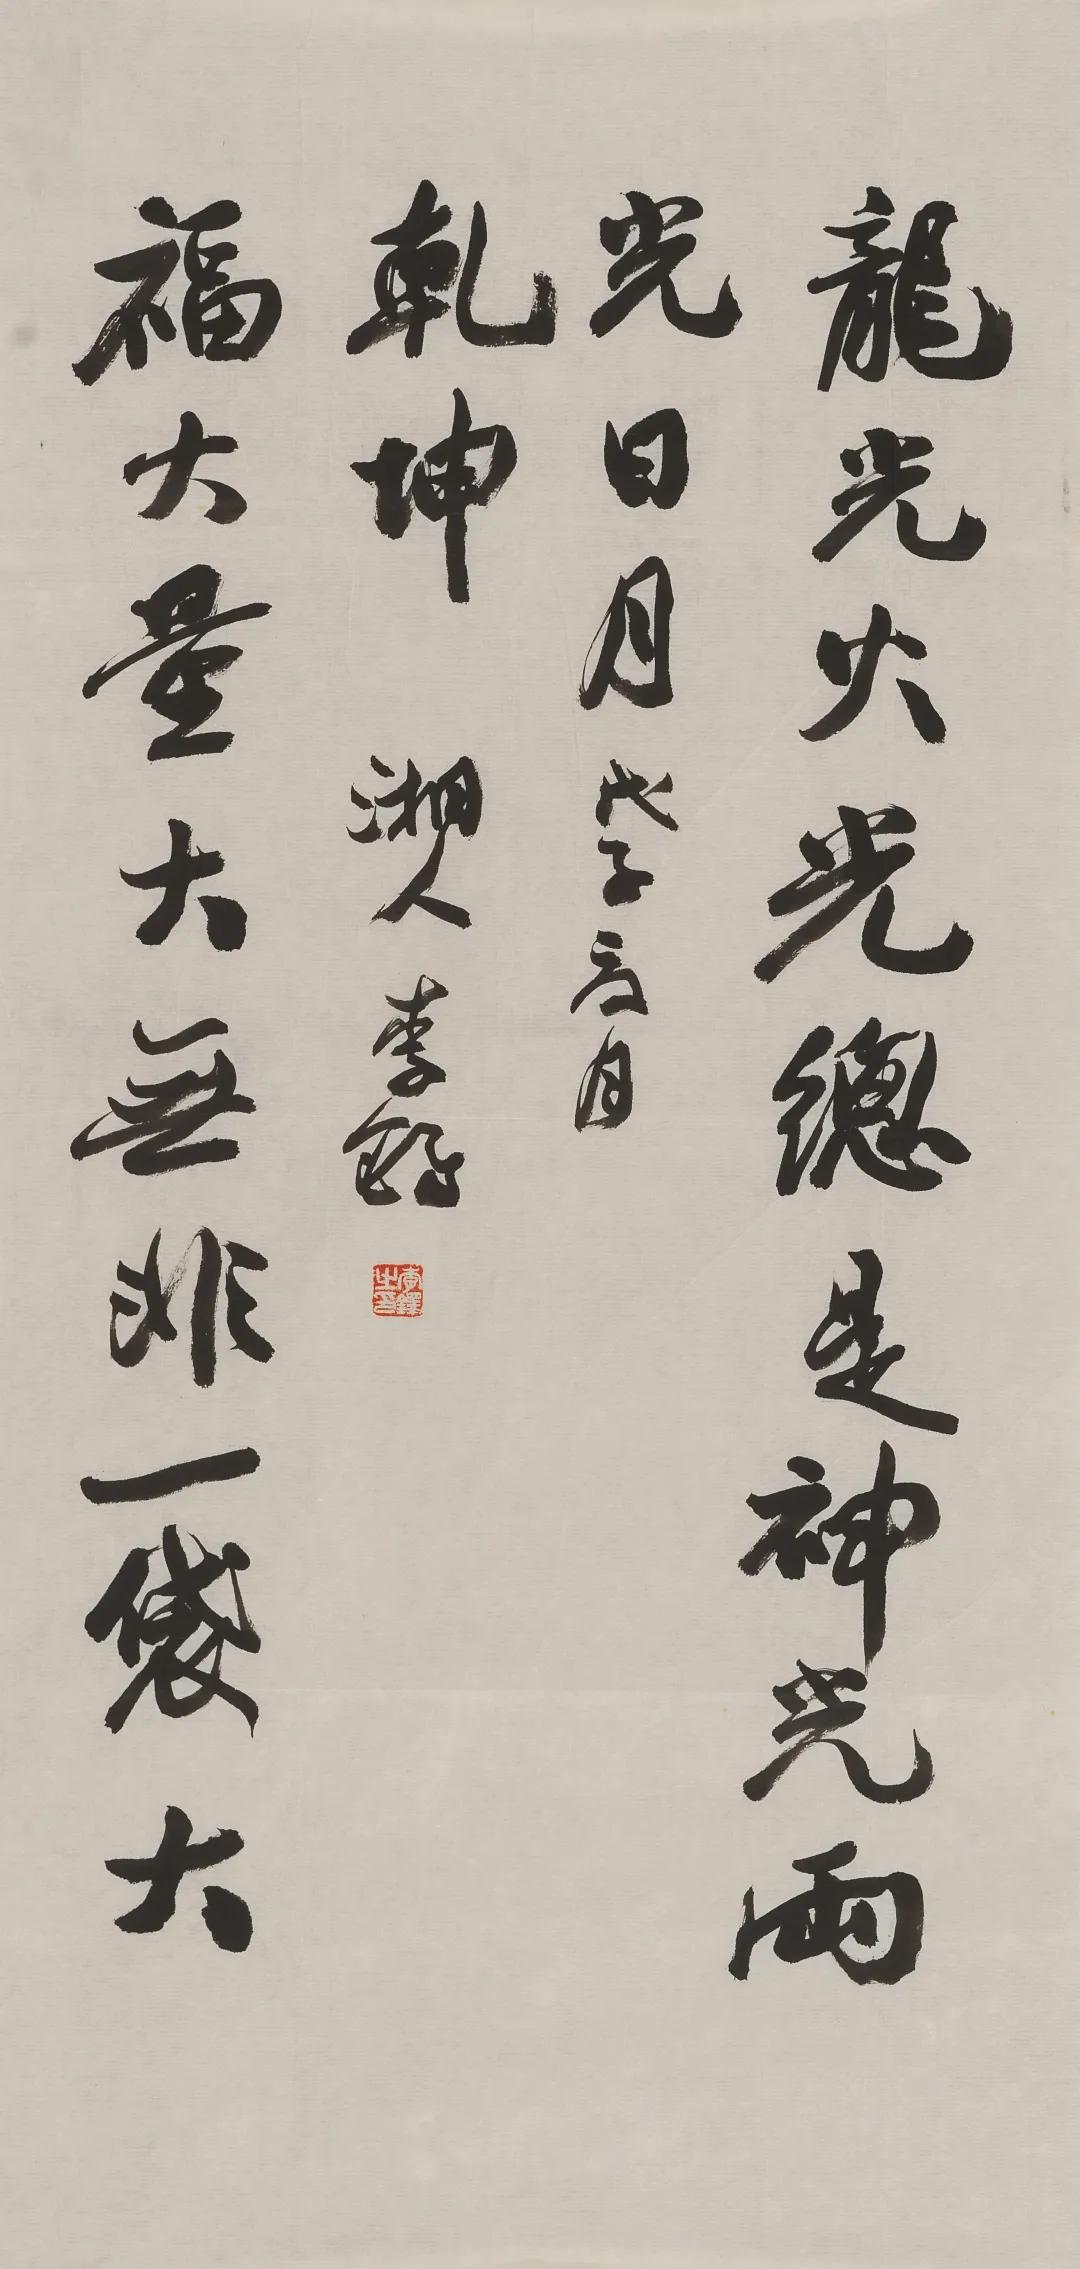 龍光火光總是神光兩
光日月
戊子夏月
福大量大無非一袋大
乾坤
湘人李鐸
李鐸之印